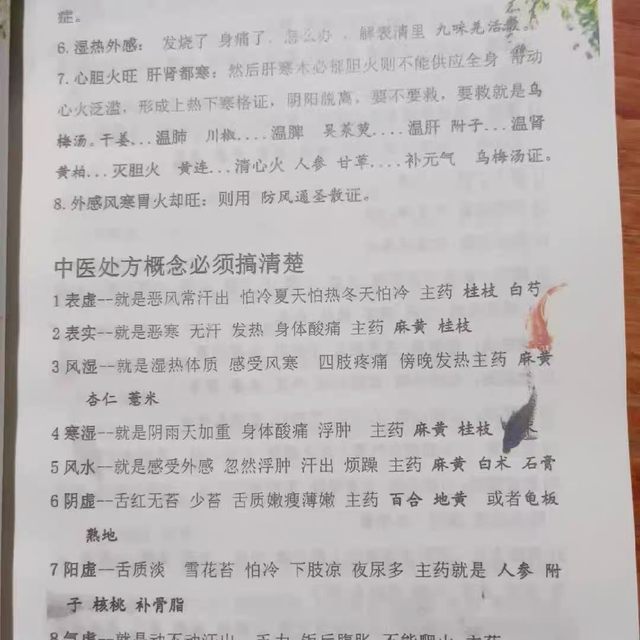 症。
6.湿热外感： 发烧了 身痛了，怎么办，解表清里 九味羌活散。
7.心胆火旺 肝肾都寒：然后肝寒木必郁胆火则不能供应全身 带动
心火泛滥，形成上热下寒格证，阴阳脱离，要不要救，要救就是乌
梅汤。干姜...温肺 川椒....温脾 吴茱萸....温肝 附子...温肾
黄柏...灭胆火 黄连...消心火 人参 甘草....补元气 乌梅汤证。
8.外感风寒胃火却旺：则用 防风通圣散证。
中医处方概念必须搞清楚
1表虚--就是恶风常汗出 怕冷夏天怕热冬天怕冷 主药 桂枝 白芍
2表实--就是恶寒 无汗 发热 身体酸痛 主药 麻黄 桂枝
3风湿--就是湿热体质 感受风寒 四肢疼痛 傍晚发热主药 麻黄
杏仁 薏米
4寒湿--就是阴雨天加重 身体酸痛 浮肿 主药 麻黄 桂枝
5风水--就是感受外感 忽然浮肿 汗出 烦躁 主药 麻黄 白术 石膏
6阴虚--舌红无苔 少苔 舌质嫩瘦薄嫩 主药 百合 地黄 或者龟板
熟地
7阳虚--舌质淡 雪花苔 怕冷 下肢凉 夜尿多 主药就是 人参 附
子 核桃 补骨脂
8气虚--就是动不动汗出 乏力 饭后腹胀 不能爬山 主药